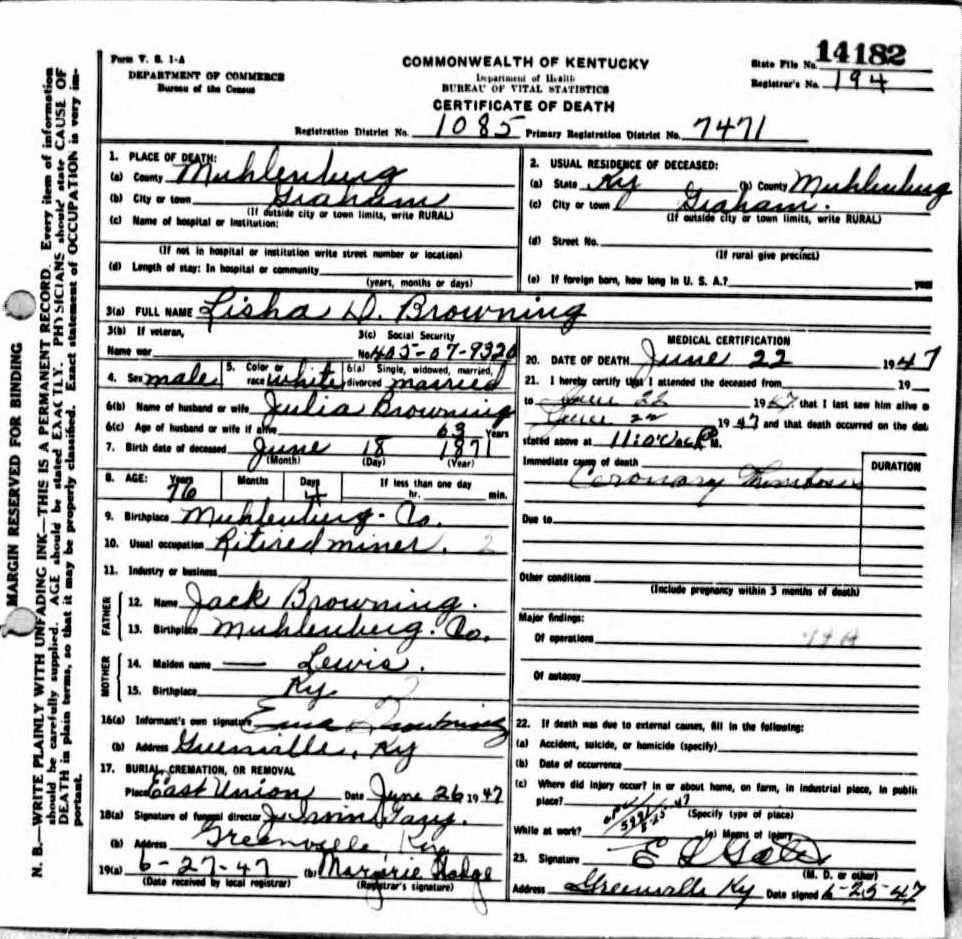 Form V. S. 1-A
DEPARTMENT OF COMMERCE
Bureau of the Census
COMMONWEALTH OF KENTUCKY
Department of Health
BUREAU OF VITAL STATISTICS
CERTIFICATE OF DEATH
State File No. 14182
Registrar's No. 194
Registration District No. 1085 Primary Registration District No. 7471
MARGIN RESERVED FOR BINDING
N. B.—WRITE PLAINLY WITH UNFADING INK—THIS IS A PERMANENT RECORD. Every item of information
should be carefully supplied. AGE should be stated EXACTLY. PHYSICIANS should state CAUSE OF
DEATH in plain terms, so that it may be properly classified. Exact statement of OCCUPATION is very im-
portant.
1. PLACE OF DEATH:
(a) County Muhlenberg
(b) City or town Graham
(If outside city or town limits, write RURAL)
(c) Name of hospital or institution:
(If not in hospital or institution write street number or location)
(d) Length of stay: In hospital or community
(years, months or days)
2. USUAL RESIDENCE OF DECEASED:
(a) State Ky (b) County Muhlenberg
(c) City or town Graham.
(If outside city or town limits, write RURAL)
(d) Street No.
(If rural give precinct)
(e) If foreign born, how long in U. S. A.? year
3(a) FULL NAME Lisha D. Browning
3(b) If veteran,
Name war
3(c) Social Security
No. 405-07-9320
4. Sex male 5. Color or race white 6(a) Single, widowed, married, divorced married
6(b) Name of husband or wife Julia Browning
6(c) Age of husband or wife if alive 63 Years
7. Birth date of deceased June 18 1871
(Month) (Day) (Year)
8. AGE: Years 76 Months Days 4 If less than one day
hr. min.
9. Birthplace Muhlenberg. Co.
10. Usual occupation Ritired miner. 2
11. Industry or business
FATHER
12. Name Jack Browning.
13. Birthplace Muhlenberg. Co.
MOTHER
14. Maiden name — Lewis.
15. Birthplace Ky
16(a) Informant's own signature Browning
(b) Address Greenville, Ky
17. BURIAL, CREMATION, OR REMOVAL
Place East Union Date June 26 1947
18(a) Signature of funeral director
(b) Address Greenville,
19(a) 6-27-47 (b) Marjorie Hodge
(Date received by local registrar) (Registrar's signature)
MEDICAL CERTIFICATION
20. DATE OF DEATH June 22 1947
21. I hereby certify that I attended the deceased from 19
to June 22 1947 that I last saw him alive o
June 22 1947 and that death occurred on the dat
stated above at 11:o'clock P M.
Immediate cause of death DURATION
Coronary Thrombosis
Due to
Other conditions
(Include pregnancy within 3 months of death)
Major findings:
Of operations 94A
Of autopsy
22. If death was due to external causes, fill in the following:
(a) Accident, suicide, or homicide (specify)
(b) Date of occurrence
(c) Where did injury occur? In or about home, on farm, in industrial place, in public
place?
(Specify type of place)
While at work? (e) Means of injury
23. Signature E L Gates
(M. D. or other)
Address Greenville Ky Date signed 6-25-47